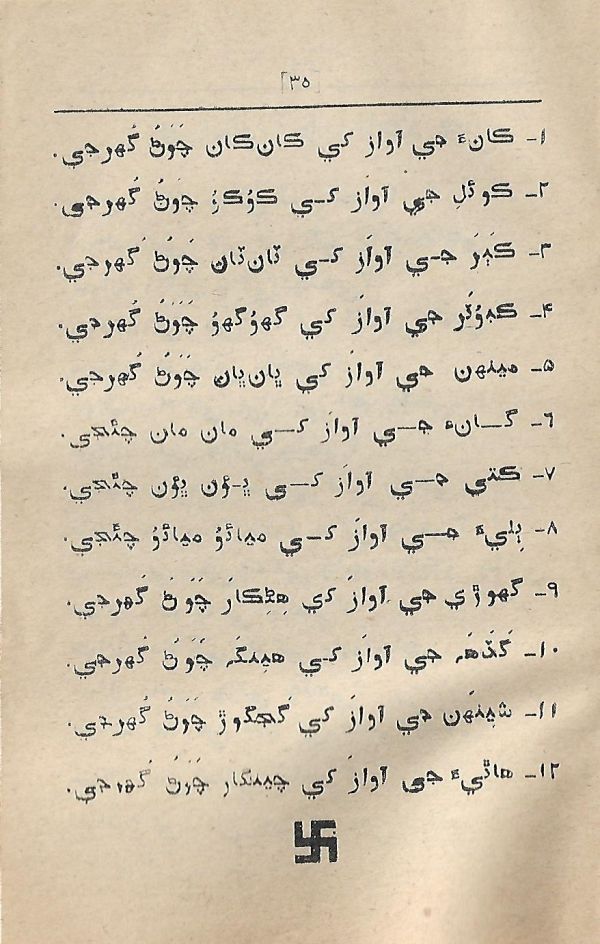 [۳۵]
۱- ڪانءَ جي آواز کي ڪان ڪان چَوَڻُ گُهرجي.
۲- ڪوئل جي آواز کي ڪُوڪُو چَوَڻُ گُهرجي.
۳- ڪَٻَرَ جي آواز کي ٽان ٽان چَوَڻُ گُهرجي.
۴- ڪبُوتَر جي آواز کي گهُوگهُو چَوَڻُ گُهرجي.
۵- مينهن جي آواز کي ڀان ڀان چَوَڻُ گُهرجي.
۶- گانءَ جي آواز کي مان مان چئجي.
۷- ڪتي جي آواز کي ڀئون ڀئون چئجي.
۸- ٻليءَ جي آواز کي ميائُو ميائُو چئجي.
۹- گهوڙي جي آواز کي هِڻڪارَ چَوَڻُ گُهرجي.
۱۰- گَڏَهَه جي آواز کي هينگَ چَوَڻُ گُهرجي.
۱۱- شينهن جي آواز کي گجگوڙ چَوَڻُ گُهرجي.
۱۲- هاٿيءَ جي آواز کي چينگار چَوَڻُ گُهرجي.